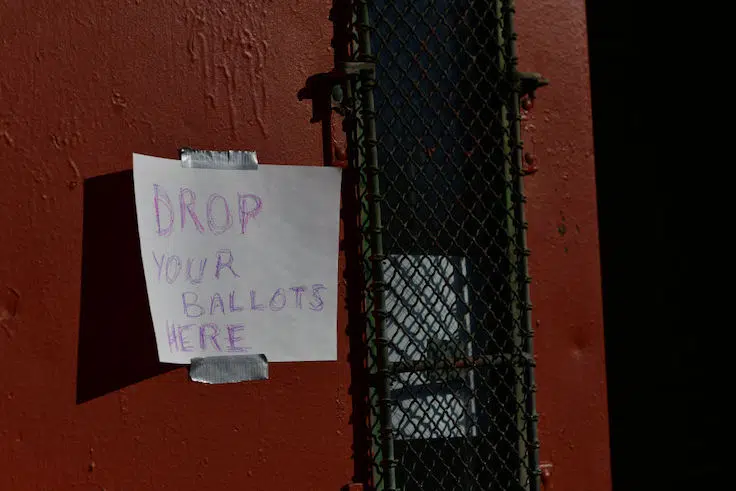 DROP
YOUR
BALLOTS
HERE